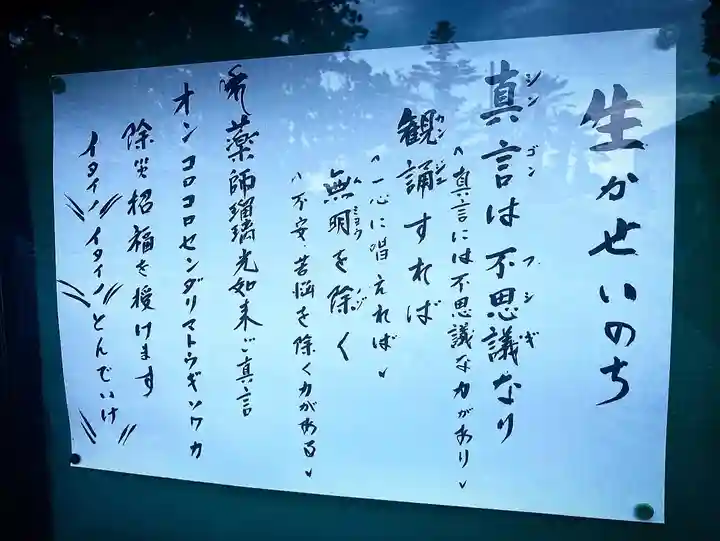 生かせいのち
真言は不思議なり
シンゴン フシギ
（真言には不思議な力があり）
観誦すれば
カンジュ
（一心に唱えれば）
無明を除く
ムミョウ ジ
（不安・苦悩を除く力がある）
薬師瑠璃光如来ご真言
オン コロコロセンダリマトウギソワカ
除災招福を授けます
イタイノイタイノとんでいけ